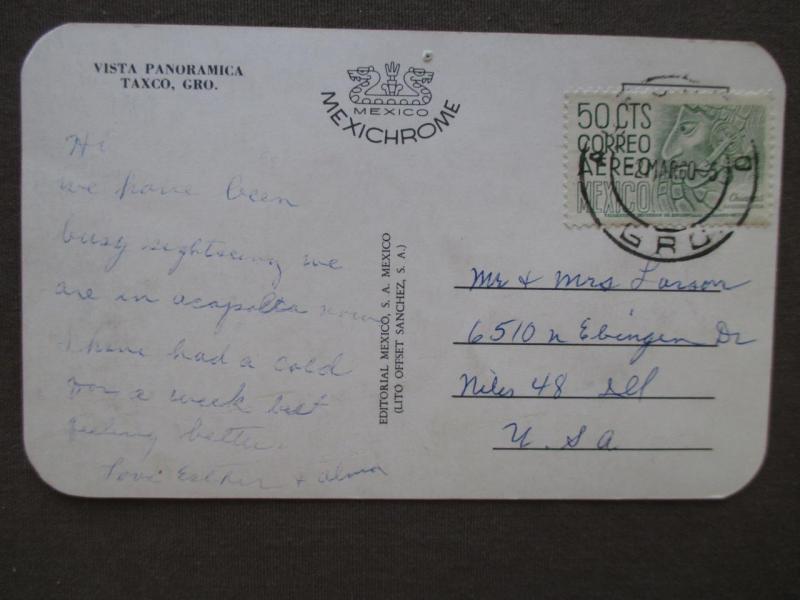 VISTA PANORAMICA
TAXCO, GRO.
MEXICO
MEXICHROME
50 CTS
CORREO
AEREO
MEXICO
2 MAR 60
GRO.
Hi
we have been
busy sightseeing we
are in acapolta now
I have had a cold
for a week best
feeling better.
Love Esther + alma
EDITORIAL MEXICO, S. A. MEXICO
(LITO OFFSET SANCHEZ, S. A.)
Mr + Mrs Larson
6510 n Ebingen Dr
Niles 48 Ill
U. S a.